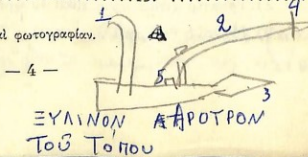 αἱ φωτογραφίαν.
— 4 —
1
2
4
5
3
ΞΥΛΙΝΟΝ ΑΡΟΤΡΟΝ
ΤΟΥ͂ ΤΌΠΟυ